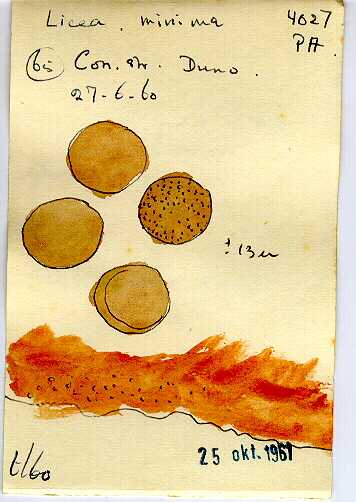 Licea minima
4027
PA.
(6is) Con. str. Duno.
27-6-60
± 13 u
t/60
25 okt. 1961